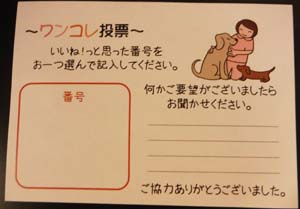 ～ワンコレ投票～
いいね!っと思った番号を
お一つ選んで記入してください。
番号
何かご要望がございましたら
お聞かせください。
ご協力ありがとうございました。